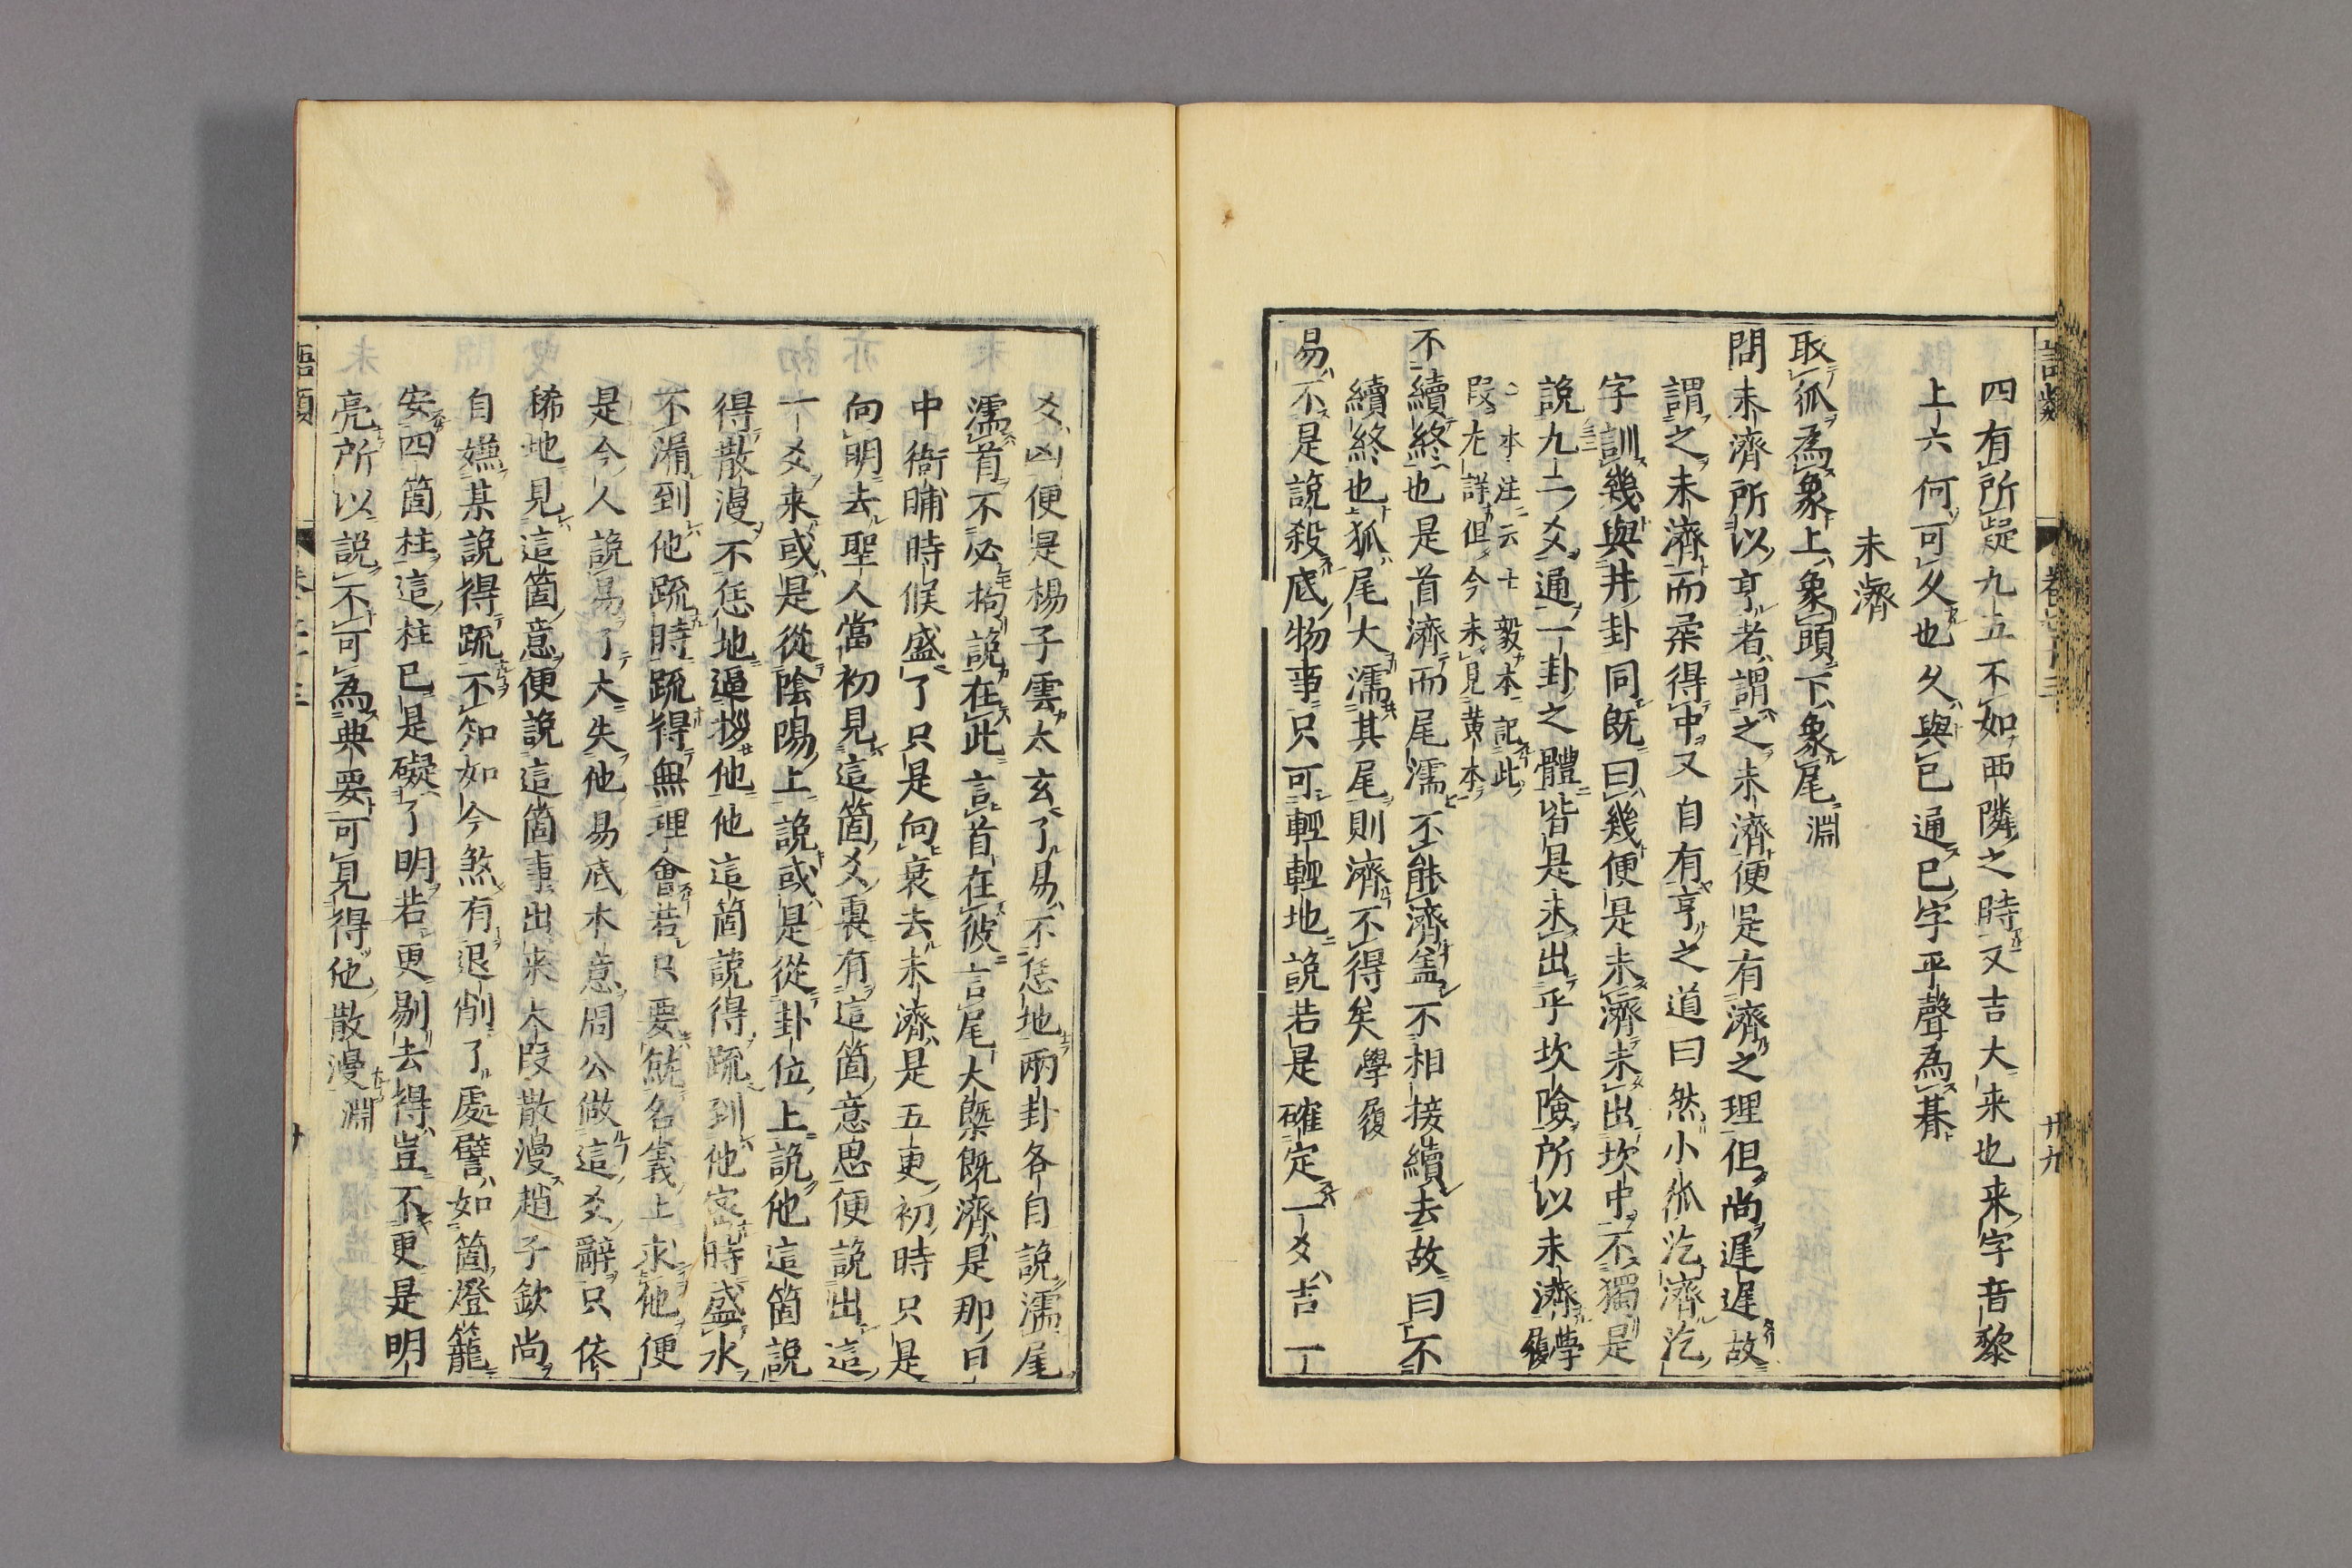 四有所疑九五不如西隣之時又吉大来也来字音黎
上六何可久也久與已通已字平聲為朞
未濟
取狐為象上象頭下象尾淵
問未濟所以亨者謂之未濟便是有濟之理但尚遲遲故
謂之未濟而柔得中又自有亨之道曰然小狐汔濟汔
字訓幾與井卦同既曰幾便是未濟未出坎中不獨是
說九二爻通一卦之體皆是未出乎坎險所以未濟學履
本注云士毅本記此
段尤詳但今未見黃本
不續終也是首濟而尾濡不能濟盖不相接續去故曰不
續終也狐尾大濡其尾則濟不得矣學履
易不是說殺底物事只可輕輕地說若是確定一爻吉一
爻凶便是楊子雲太玄了易不恁地兩卦各自說濡尾
濡首不必拘說在此言首在彼言尾大槩既濟是那日
中衙晡時候盛了只是向衰去未濟是五更初時只是
向明去聖人當初見這箇爻裏有這箇意思便說出這
一爻来或是從陰陽上說或是從卦位上說他這箇說
得散漫不恁地逼拶他他這箇說得疏到他密時盛水
不漏到他疏時疏得無理會若只要就名義上求他便
是今人說易了大失他易底本意周公做這爻辭只依
稀地見這箇意便說這箇事出来大段散漫趙子欽尚
自嫌某說得疏不知如今煞有退削了處譬如箇燈籠
安四箇柱這柱已是礙了明若更剔去得豈不更是明
亮所以說不可為典要可見得他散漫淵
語類
卅九